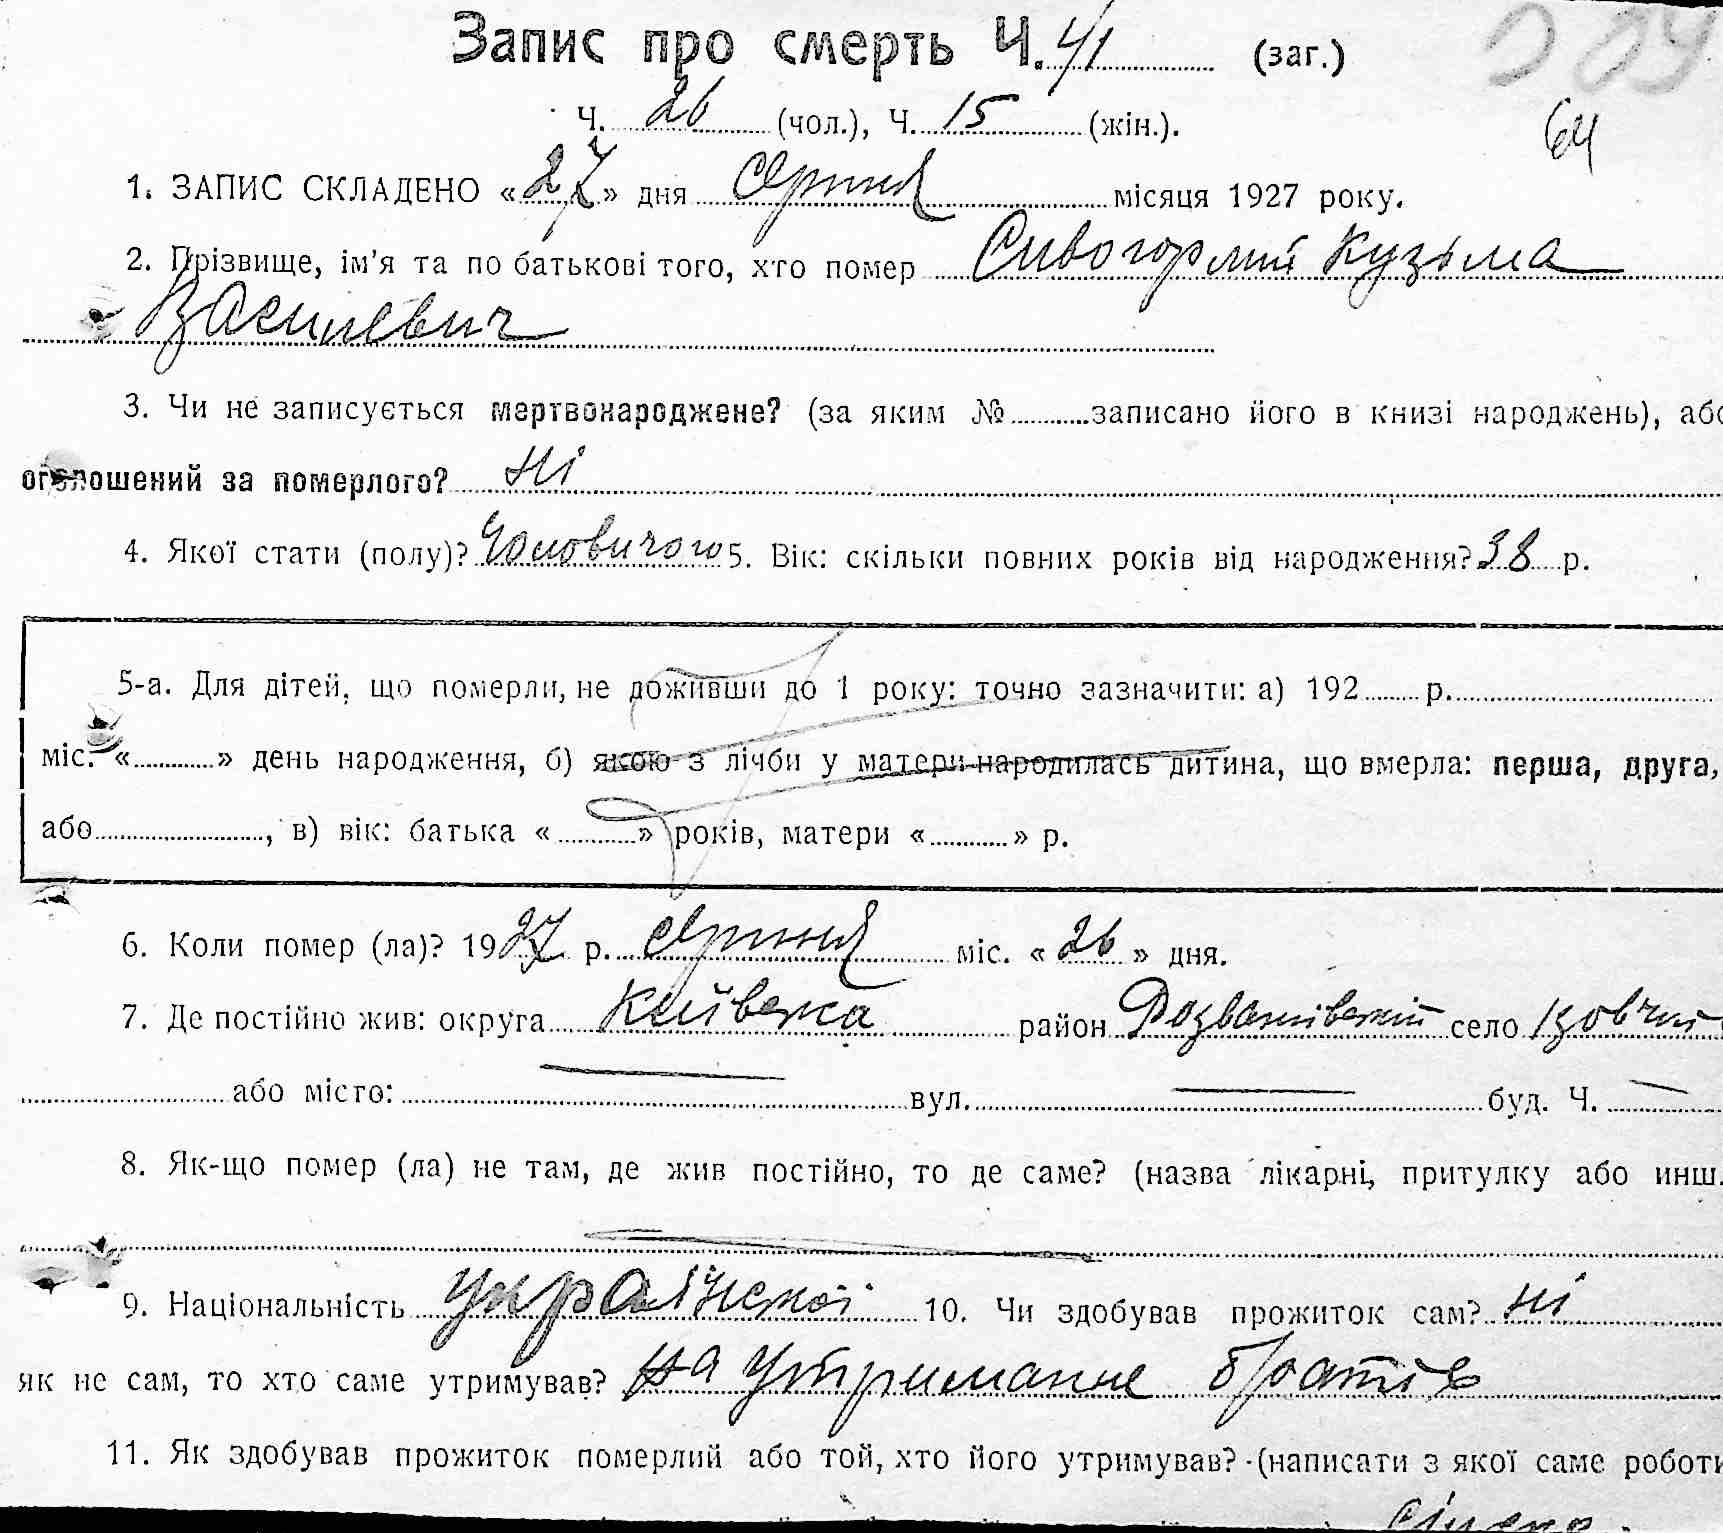 Запис про смерть Ч. 41 (заг.)
64
Ч. 26 (чол.), Ч. 15 (жін.).
1. ЗАПИС СКЛАДЕНО «27» дня серпня місяця 1927 року.
2. Прізвище, ім'я та по батькові того, хто помер Сивогорлий Кузьма
Василевич
3. Чи не записується мертвонароджене? (за яким № записано його в книзі народжень), або
оголошений за померлого? Ні
4. Якої стати (полу)? Чоловичого 5. Вік: скільки повних років від народження? 38 р.
5-а. Для дітей, що померли, не доживши до 1 року: точно зазначити: а) 192 р.
міс. « » день народження, б) якою з лічби у матери народилась дитина, що вмерла: перша, друга,
або , в) вік: батька « » років, матери « » р.
6. Коли помер (ла)? 1927 р. серпня міс. « 26 » дня.
7. Де постійно жив: округа Київська район село
або місто: — вул. — буд. Ч. —
8. Як-що помер (ла) не там, де жив постійно, то де саме? (назва лікарні, притулку або инш.
9. Національність Української 10. Чи здобував прожиток сам? Ні
як не сам, то хто саме утримував? на утриманне братів
11. Як здобував прожиток померлий або той, хто його утримував? (написати з якої саме роботи